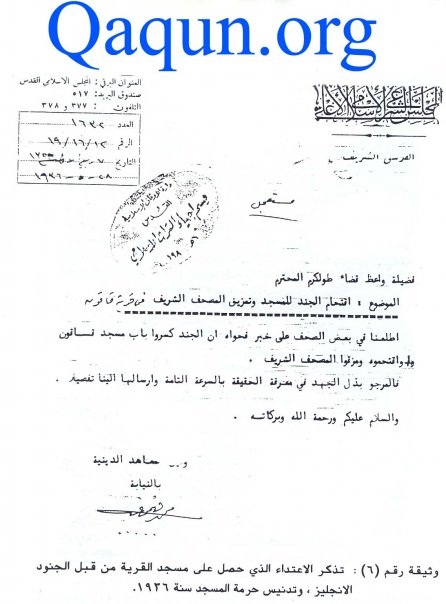 Qaqun.org
المجلس الشرعي الإسلامي الأعلى
العنوان البرقي: المجلس الاسلامي القدس
صندوق البريد: ٥١٧
التلفون: ٣٧٧ و ٣٧٨
العدد ١٦٣٢
الرقم ١٩/١٦/١٢
التاريخ
٢٨-٥-١٩٣٦
القدس الشريف
مستعجل
القدس
قسم احياء التراث الاسلامي
فضيلة واعظ قضاء طولكرم المحترم
الموضوع: اقتحام الجند للمسجد وتمزيق المصحف الشريف في قرية قاقون
اطلعنا في بعض الصحف على خبر فحواه ان الجند كسروا باب مسجد قاقون
واقتحموه ومزقوا المصحف الشريف.
فالمرجو بذل الجهد في معرفة الحقيقة بالسرعة التامة وارسالها الينا تفصيلا.
والسلام عليكم ورحمة الله وبركاته.
المعاهد الدينية
بالنيابة
وثيقة رقم (٦): تذكر الاعتداء الذي حصل على مسجد القرية من قبل الجنود
الانجليز، وتدنيس حرمة المسجد سنة ١٩٣٦.